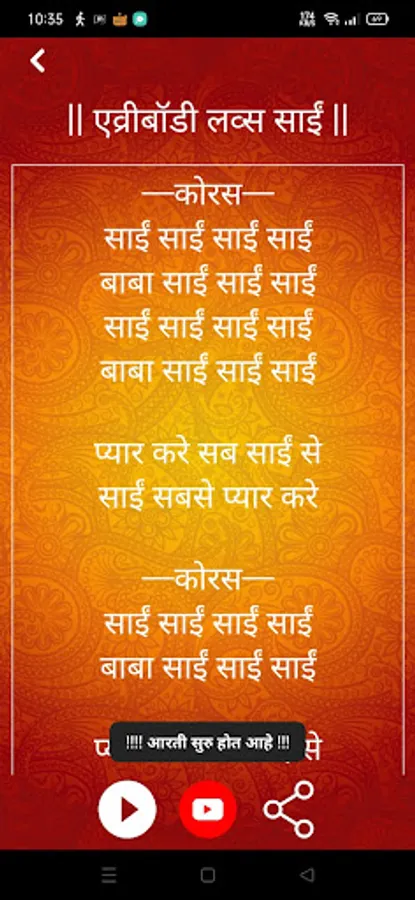 10:35
174 KB/S
69
|| एव्रीबॉडी लव्स साईं ||
—कोरस—
साईं साईं साईं साईं
बाबा साईं साईं साईं
साईं साईं साईं साईं
बाबा साईं साईं साईं
प्यार करे सब साईं से
साईं सबसे प्यार करे
—कोरस—
साईं साईं साईं साईं
बाबा साईं साईं साईं
से
!!!! आरती सुरु होत आहे !!!